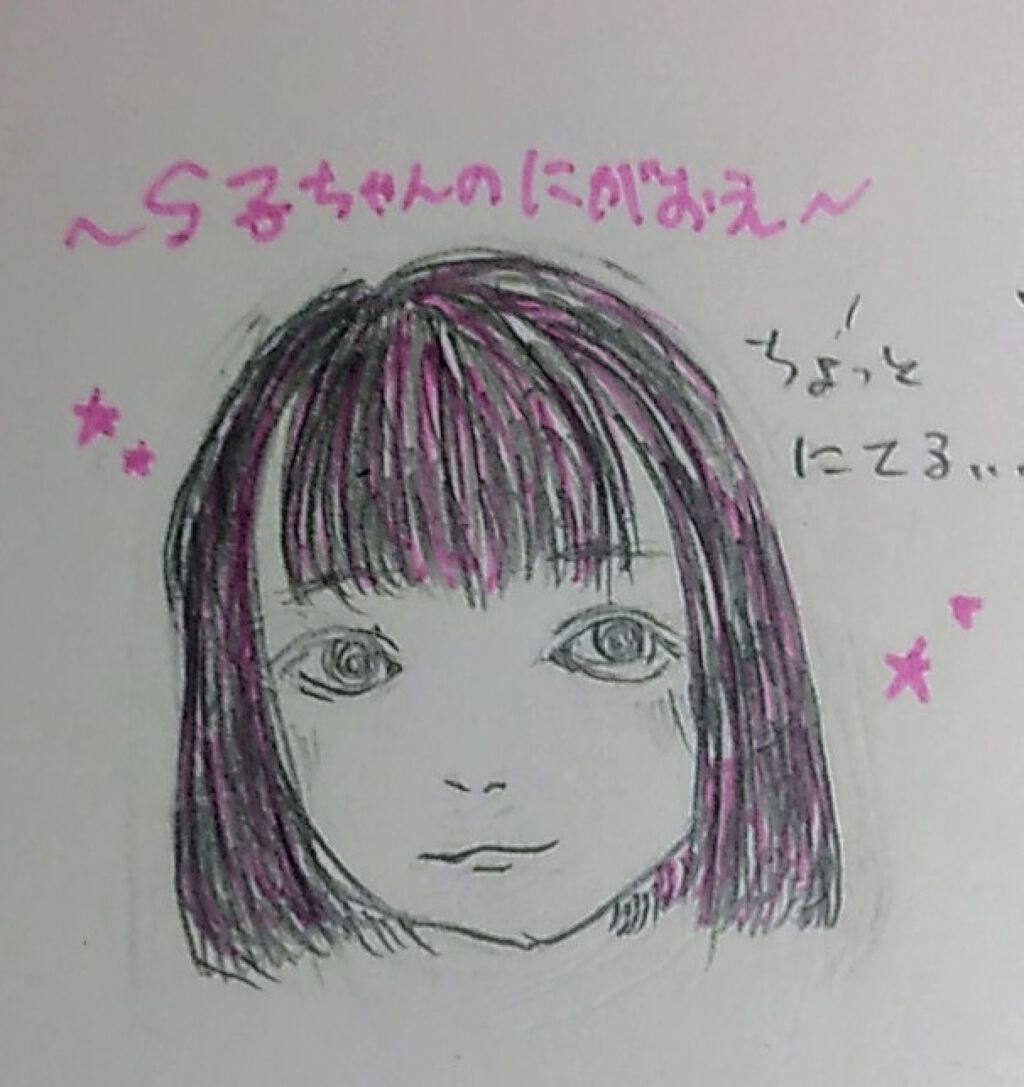 ～S子ちゃんのにがおえ～
ちょっと
にてる...